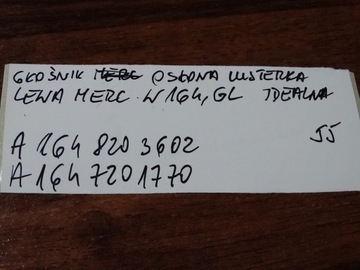 GŁOŚNIK MERC OSŁONA LUSTERKA
LEWA MERC. W164, GL IDEALNA
55
A 164 820 3602
A 164 720 1770